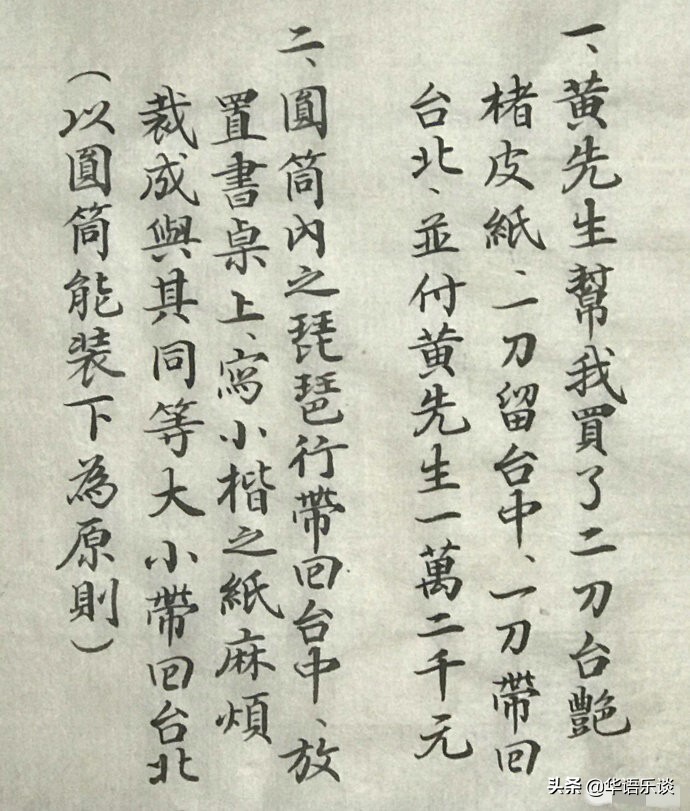 一、黃先生幫我買了二刀台艷
楮皮紙、二刀留台中、一刀帶回
台北、並付黃先生一萬二千元
二、圓筒內之琵琶行帶回台中、放
置書桌上、寫小楷之紙麻煩
裁成與其同等大小帶回台北
（以圓筒能装下為原則）
头条 @华语乐谈